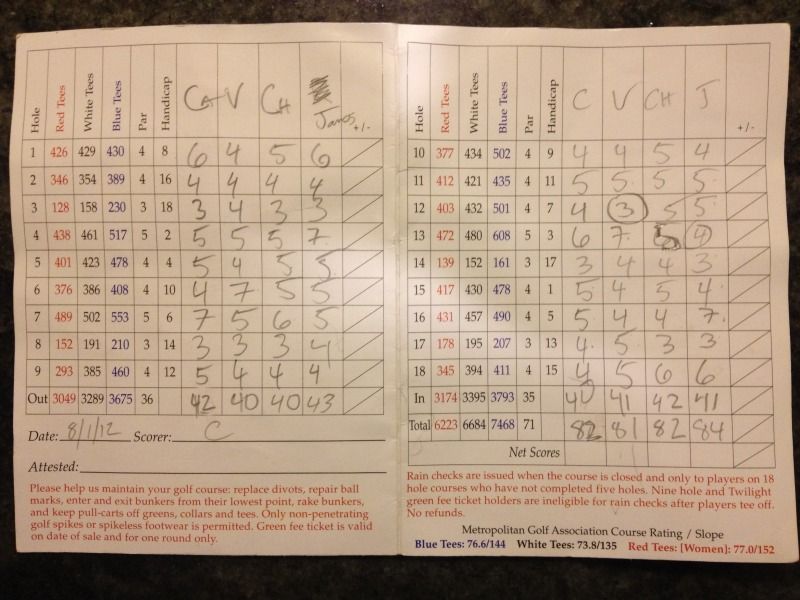 Hole Red Tees White Tees Blue Tees Par Handicap CA V CH James +/-
1 426 429 430 4 8 6 4 5 6
2 346 354 389 4 16 4 4 4 4
3 128 158 230 3 18 3 4 3 3
4 438 461 517 5 2 5 5 5 7
5 401 423 478 4 4 5 4 5 5
6 376 386 408 4 10 4 7 5 5
7 489 502 553 5 6 7 5 6 5
8 152 191 210 3 14 3 3 3 4
9 293 385 460 4 12 5 4 4 4
Out 3049 3289 3675 36 42 40 40 43
Date: 8/1/12 Scorer: C
Attested:
Please help us maintain your golf course: replace divots, repair ball
marks, enter and exit bunkers from their lowest point, rake bunkers,
and keep pull-carts off greens, collars and tees. Only non-penetrating
golf spikes or spikeless footwear is permitted. Green fee ticket is valid
on date of sale and for one round only.
Hole Red Tees White Tees Blue Tees Par Handicap C V CH J +/-
10 377 434 502 4 9 4 4 5 4
11 412 421 435 4 11 5 5 5 5
12 403 432 501 4 7 4 3 5 5
13 472 480 608 5 3 6 7 4
14 139 152 161 3 17 3 4 4 3
15 417 430 478 4 1 5 4 5 4
16 431 457 490 4 5 5 4 4 7
17 178 195 207 3 13 4 5 3 3
18 345 394 411 4 15 4 5 6 6
In 3174 3395 3793 35 40 41 42 41
Total 6223 6684 7468 71 82 81 82 84
Net Scores
Rain checks are issued when the course is closed and only to players on 18
hole courses who have not completed five holes. Nine hole and Twilight
green fee ticket holders are ineligible for rain checks after players tee off.
No refunds.
Metropolitan Golf Association Course Rating / Slope
Blue Tees: 76.6/144 White Tees: 73.8/135 Red Tees: [Women]: 77.0/152